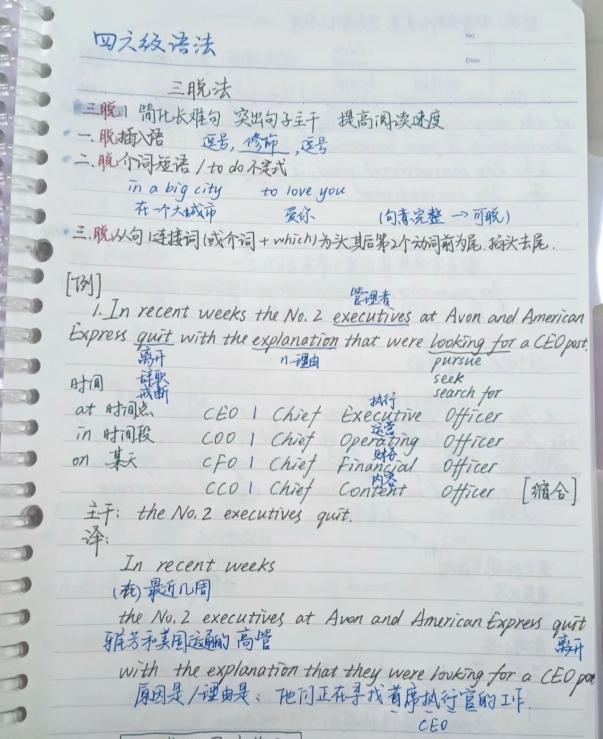 四六级语法
No.
Date
三脱法
三脱 | 简化长难句 突出句子主干 提高阅读速度
一.脱插入语 逗号,修饰,逗号
二.脱介词短语/to do不定式
in a big city to love you
在一个大城市 爱你 (句意完整→可脱)
三.脱从句 | 连接词(或介词+which)为头,其后第2个动词前为尾.掐头去尾.
[例]
管理者
1. In recent weeks the No.2 executives at Avon and American
Express quit with the explanation that were looking for a CEO post.
离开 n.理由 pursue
辞职 seek
戒断 search for
时间
at 时间点
in 时间段
on 某天
执行
CEO | Chief Executive Officer
运营
COO | Chief Operating Officer
财务
CFO | Chief Financial Officer
内容
CCO | Chief Content Officer [缩合]
主干: the No.2 executives quit.
译:
In recent weeks
(在)最近几周
the No.2 executives at Avon and American Express quit
雅芳和美国运通的高管 离开
with the explanation that they were looking for a CEO
原因是/理由是: 他们正在寻找首席执行官的工作.
CEO